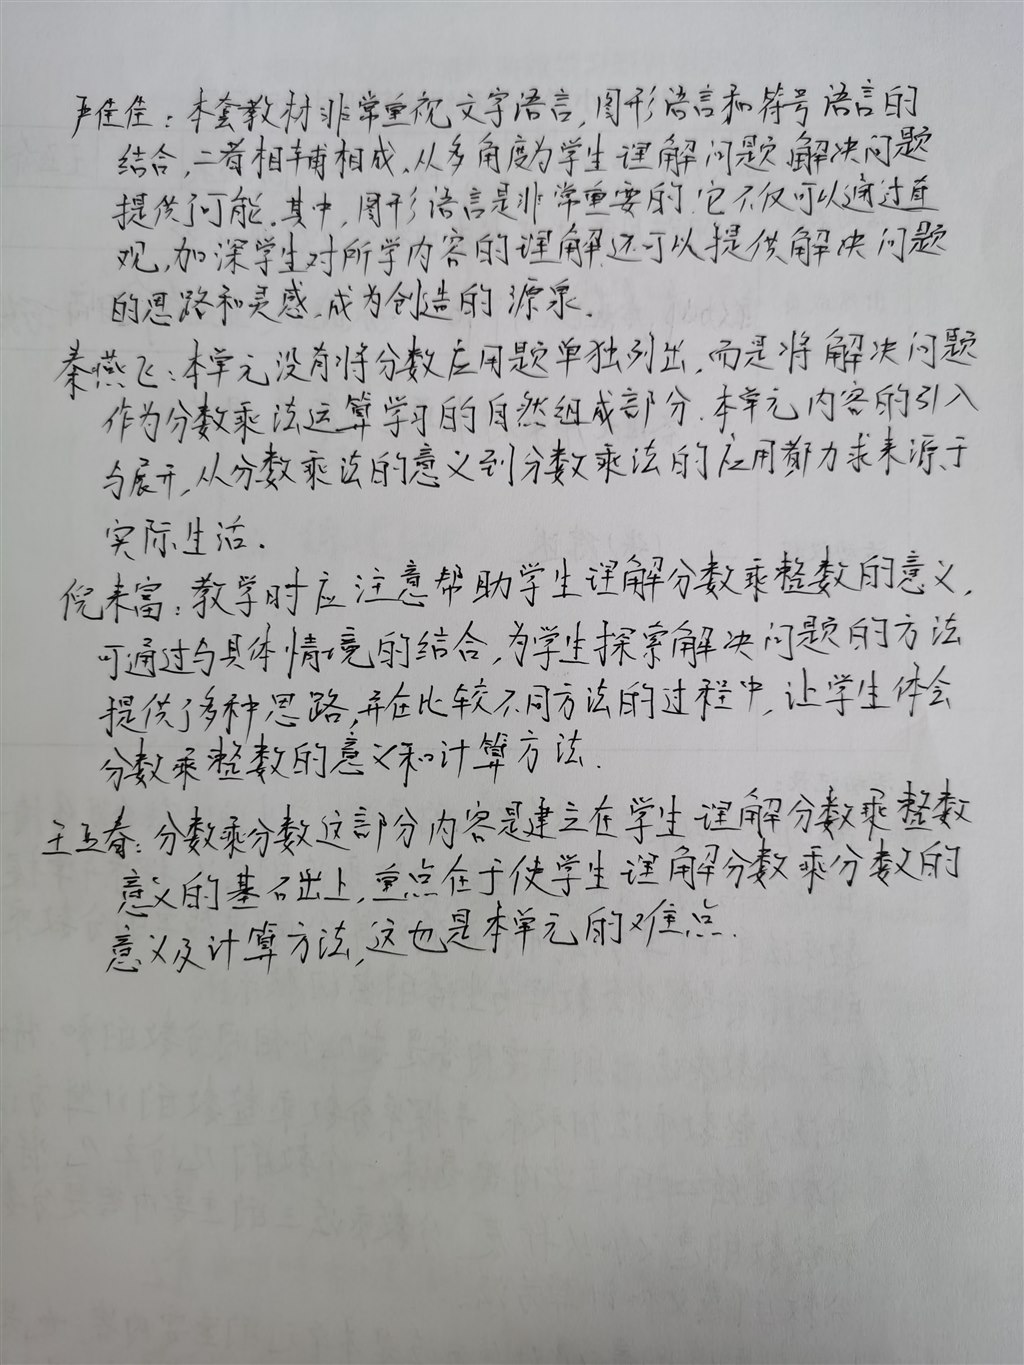 严佳佳：本套教材非常重视文字语言,图形语言和符号语言的
结合,二者相辅相成,从多角度为学生理解问题解决问题
提供了可能.其中,图形语言是非常重要的.它不仅可以通过直
观,加深学生对所学内容的理解还可以提供解决问题
的思路和灵感.成为创造的源泉.
秦燕飞：本单元没有将分数应用题单独列出,而是将解决问题
作为分数乘法运算学习的自然组成部分.本单元内容的引入
与展开,从分数乘法的意义到分数乘法的应用都力求来源于
实际生活.
倪来富：教学时应注意帮助学生理解分数乘整数的意义,
可通过与具体情境的结合,为学生探索解决问题的方法
提供了多种思路,并在比较不同方法的过程中,让学生体会
分数乘整数的意义和计算方法.
王玉春：分数乘分数这部分内容是建立在学生理解分数乘整数
意义的基础上,重点在于使学生理解分数乘分数的
意义及计算方法,这也是本单元的难点.